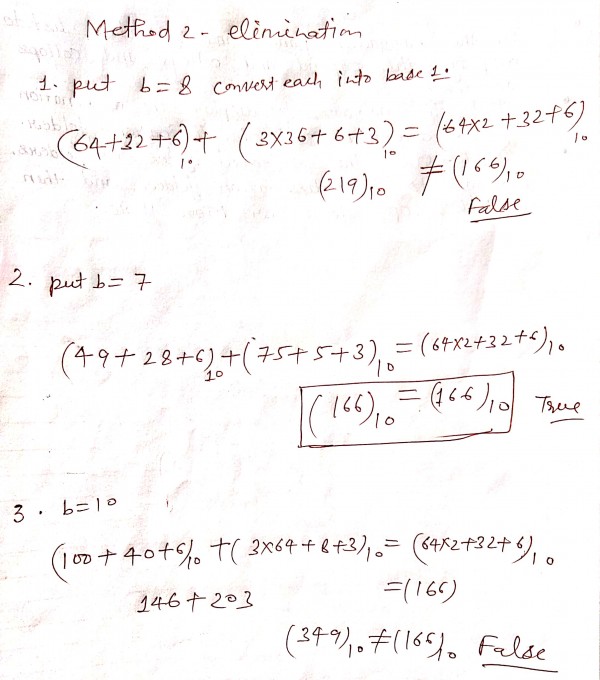 Method 2 - elimination
1. put b = 8 convert each into base 1.
(64+32+6)₁₀ + (3×36+6+3)₁₀ = (64×2+32+6)₁₀
(219)₁₀ ≠ (166)₁₀
False
2. put b = 7
(49+28+6)₁₀ + (75+5+3)₁₀ = (64×2+32+6)₁₀
(166)₁₀ = (166)₁₀ True
3. b=10
(100+40+6)₁₀ + (3×64+8+3)₁₀ = (64×2+32+6)₁₀
146+203 =(166)
(349)₁₀ ≠ (166)₁₀ False